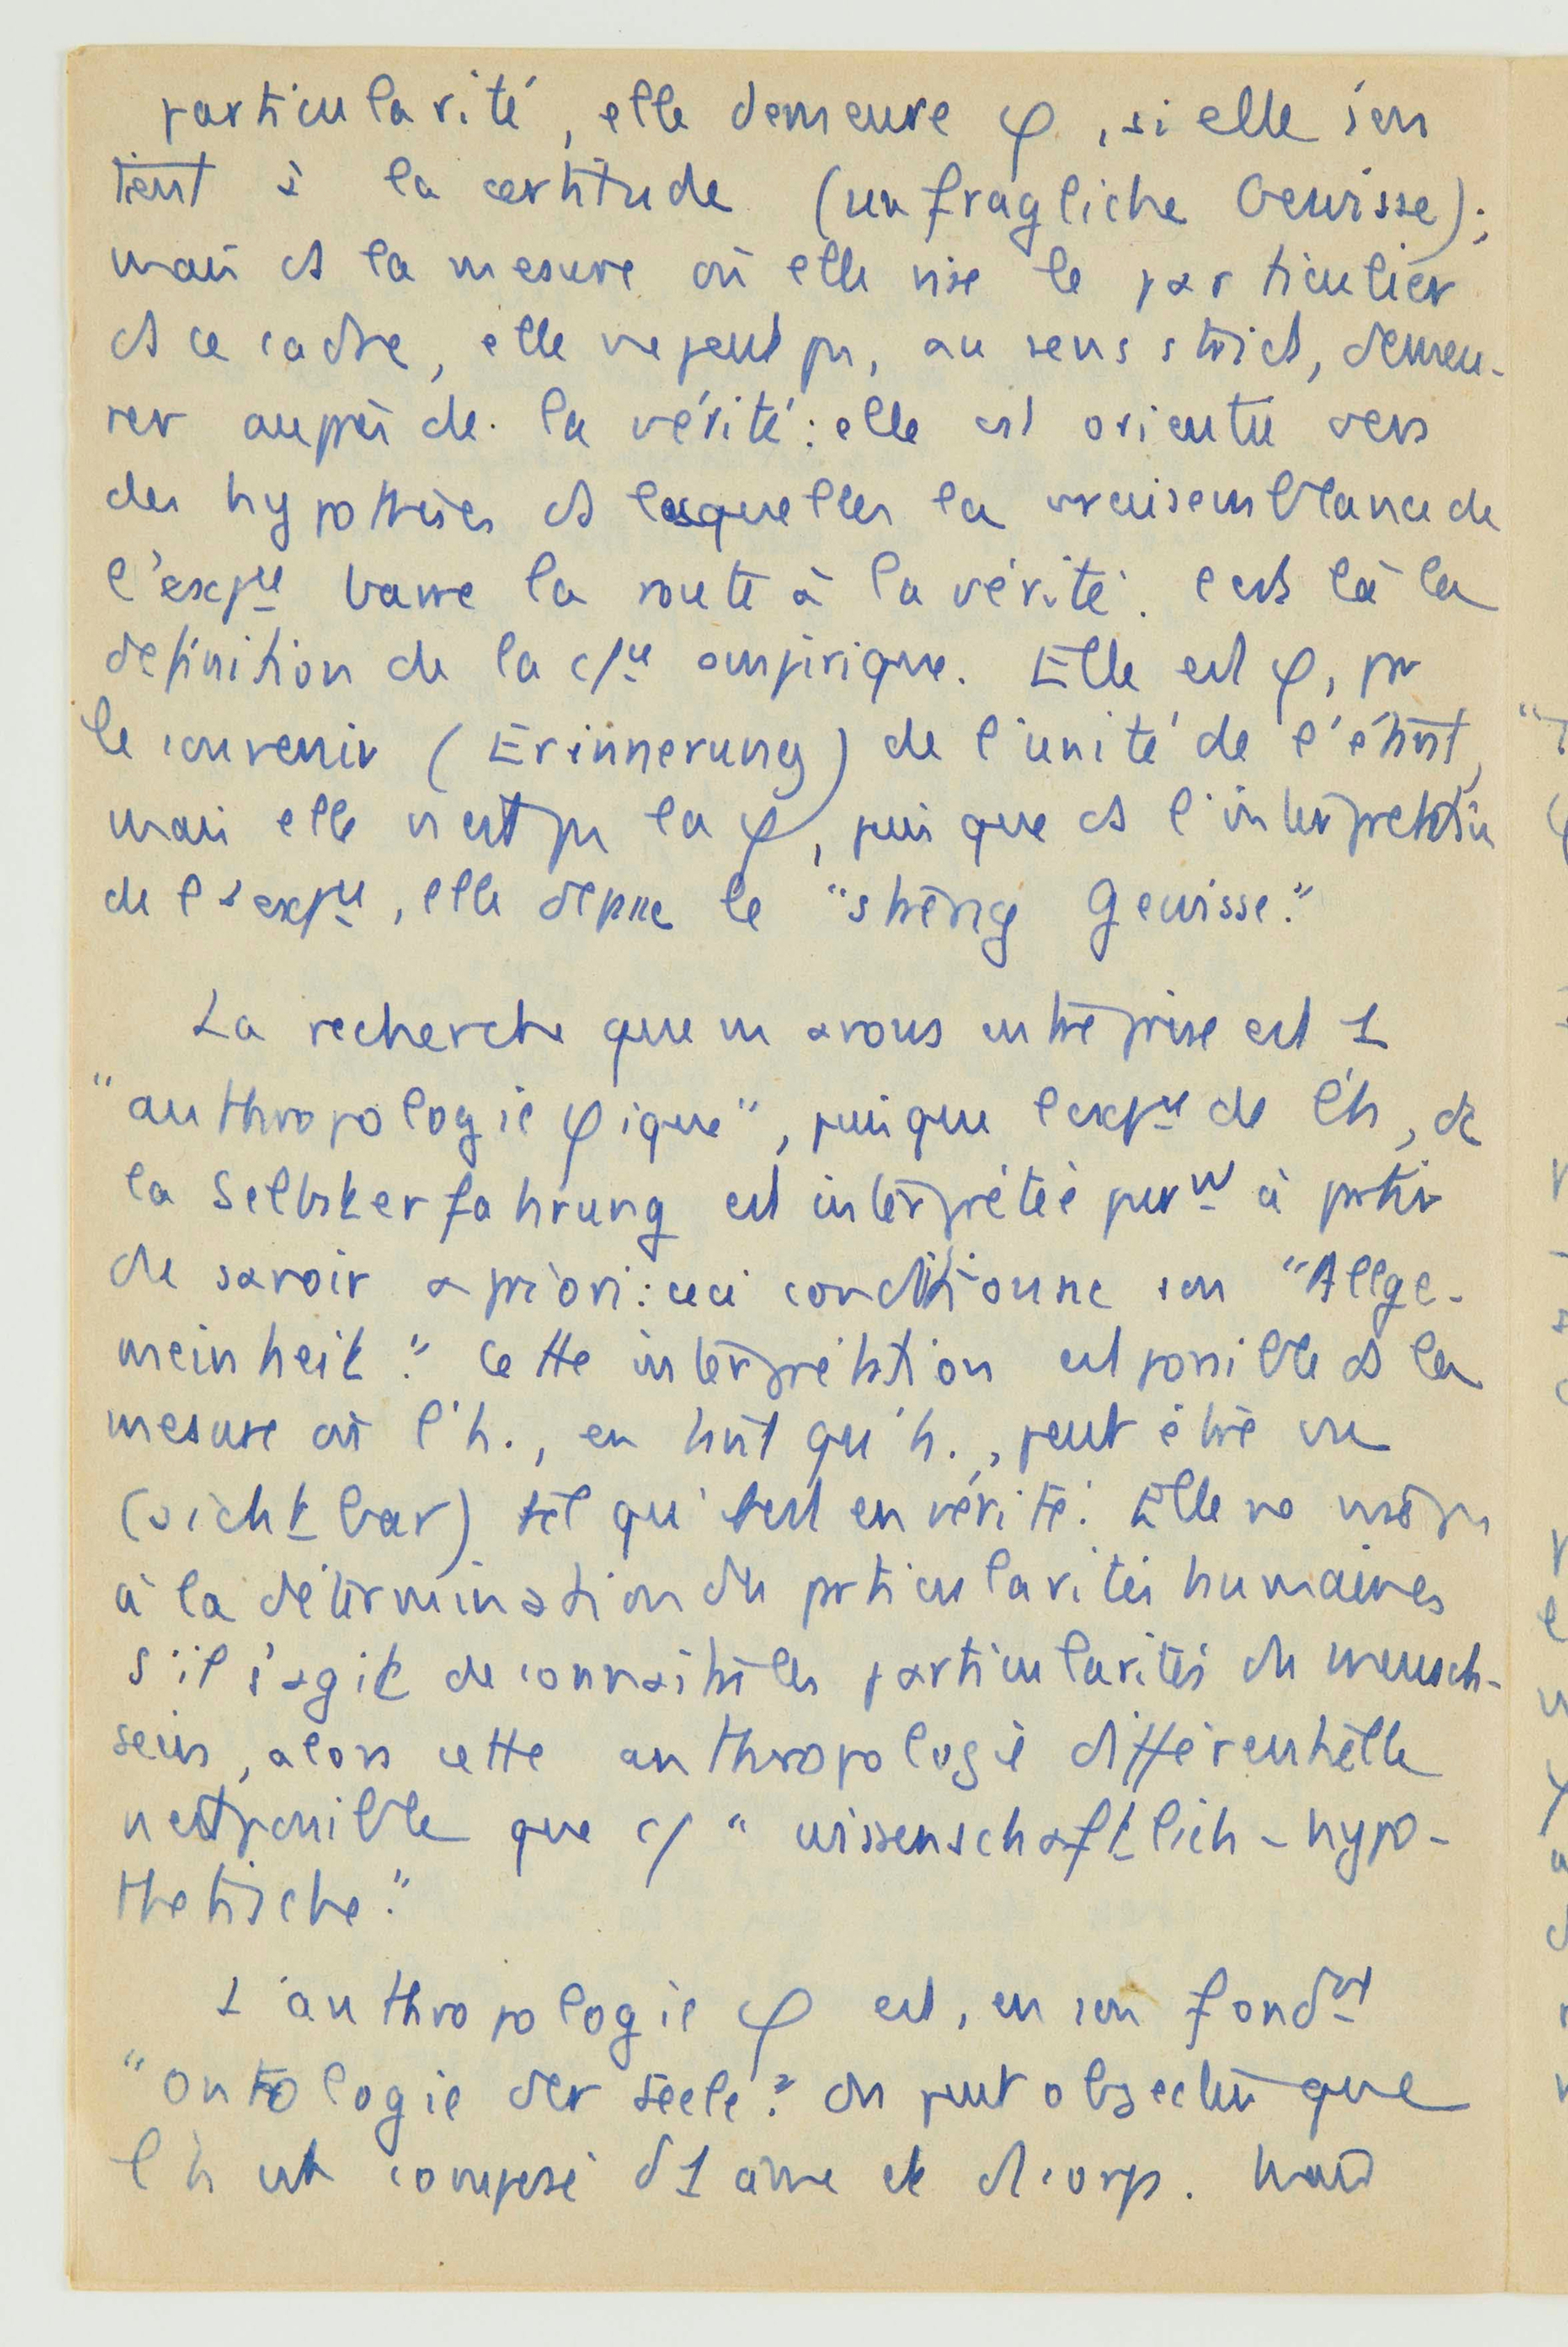 particularité, elle demeure φ, si elle s'en
tient à la certitude (unfragliche Gewisse);
mais ds la mesure où elle vise le particulier
ds ce cadre, elle ne peut pas, au sens strict, demeu-
rer auprès de la vérité : elle est orientée vers
des hypothèses ds lesquelles la vraisemblance de
l'expce barre la route à la vérité. C'est là la
définition de la cce empirique. Elle est φ, par
le souvenir (Erinnerung) de l'unité de l'étant,
mais elle n'est pas la φ, puisque ds l'interprétation
de l'expce, elle dépasse le "streng Gewisse."
La recherche que ns avons entreprise est 1
"anthropologie φique", puisque l'expce de l'h, de
la Selbsterfahrung est interprétée purmt à partir
de savoir a priori : ceci conditionne son "Allge-
meinheit." Cette interprétation est possible ds la
mesure où l'h., en tant qu'h., peut être vu
(sichtbar) tel qu'il est en vérité. Elle ne va pas
à la détermination des particularités humaines
s'il s'agit de connaître les particularités du mensch-
sein, alors cette anthropologie différentielle
n'est possible que c/ "wissenschaftlich-hypo-
thetische."
L'anthropologie φ est, en son fondmt
"ontologie der Seele." On peut objecter que
l'h est composé d'1 âme et d'1 corps. Mais